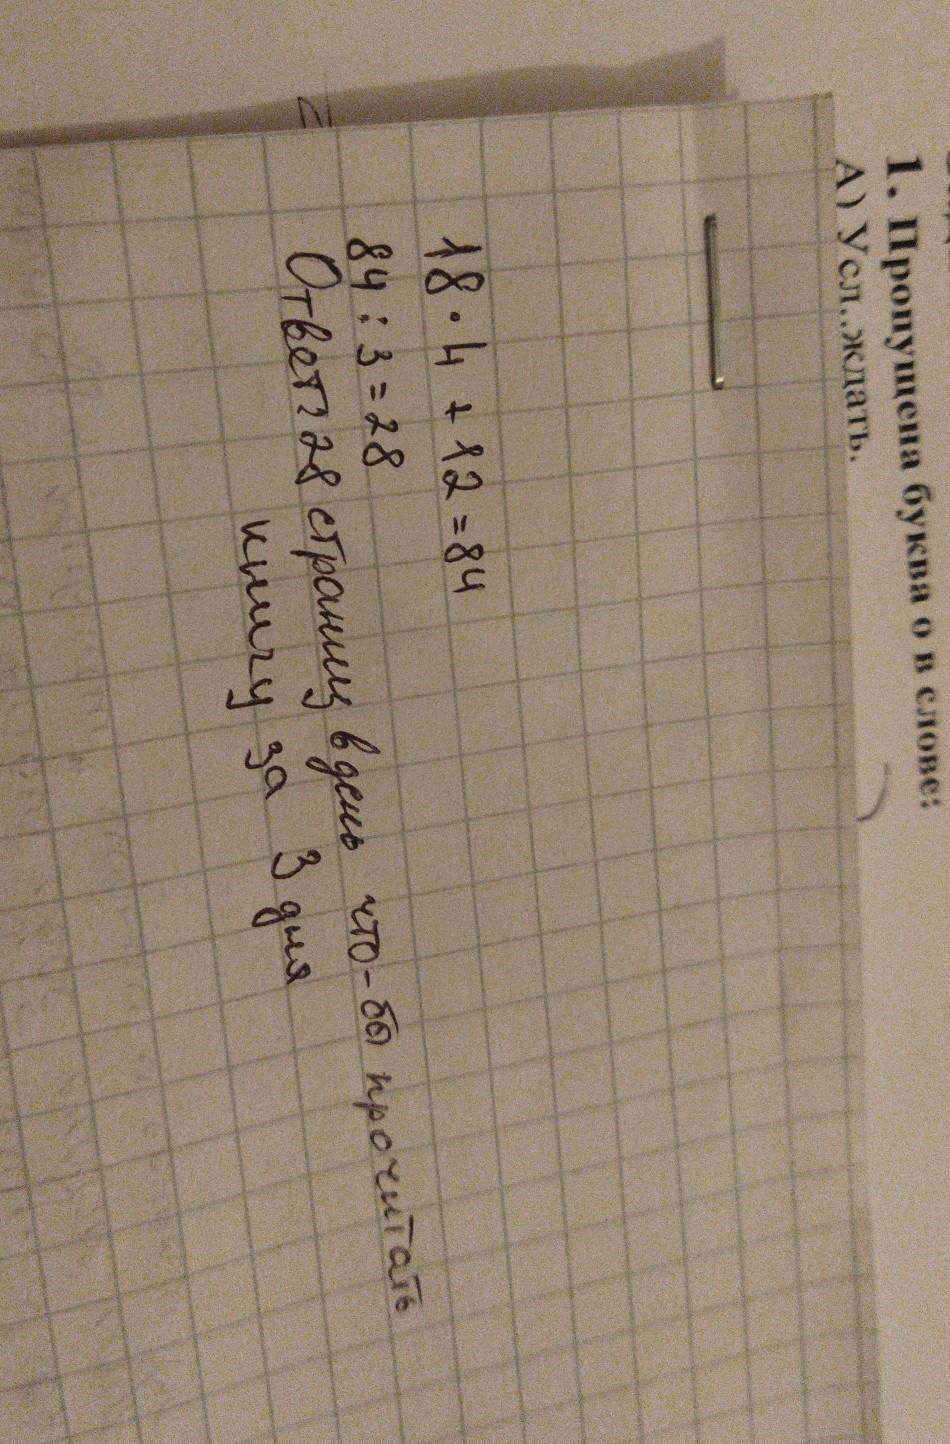 1. Пропущена буква о в слове:
А) Усл..ждать.
18 · 4 + 12 = 84
84 : 3 = 28
Ответ: 28 страниц в день что-бы прочитать
книгу за 3 дня